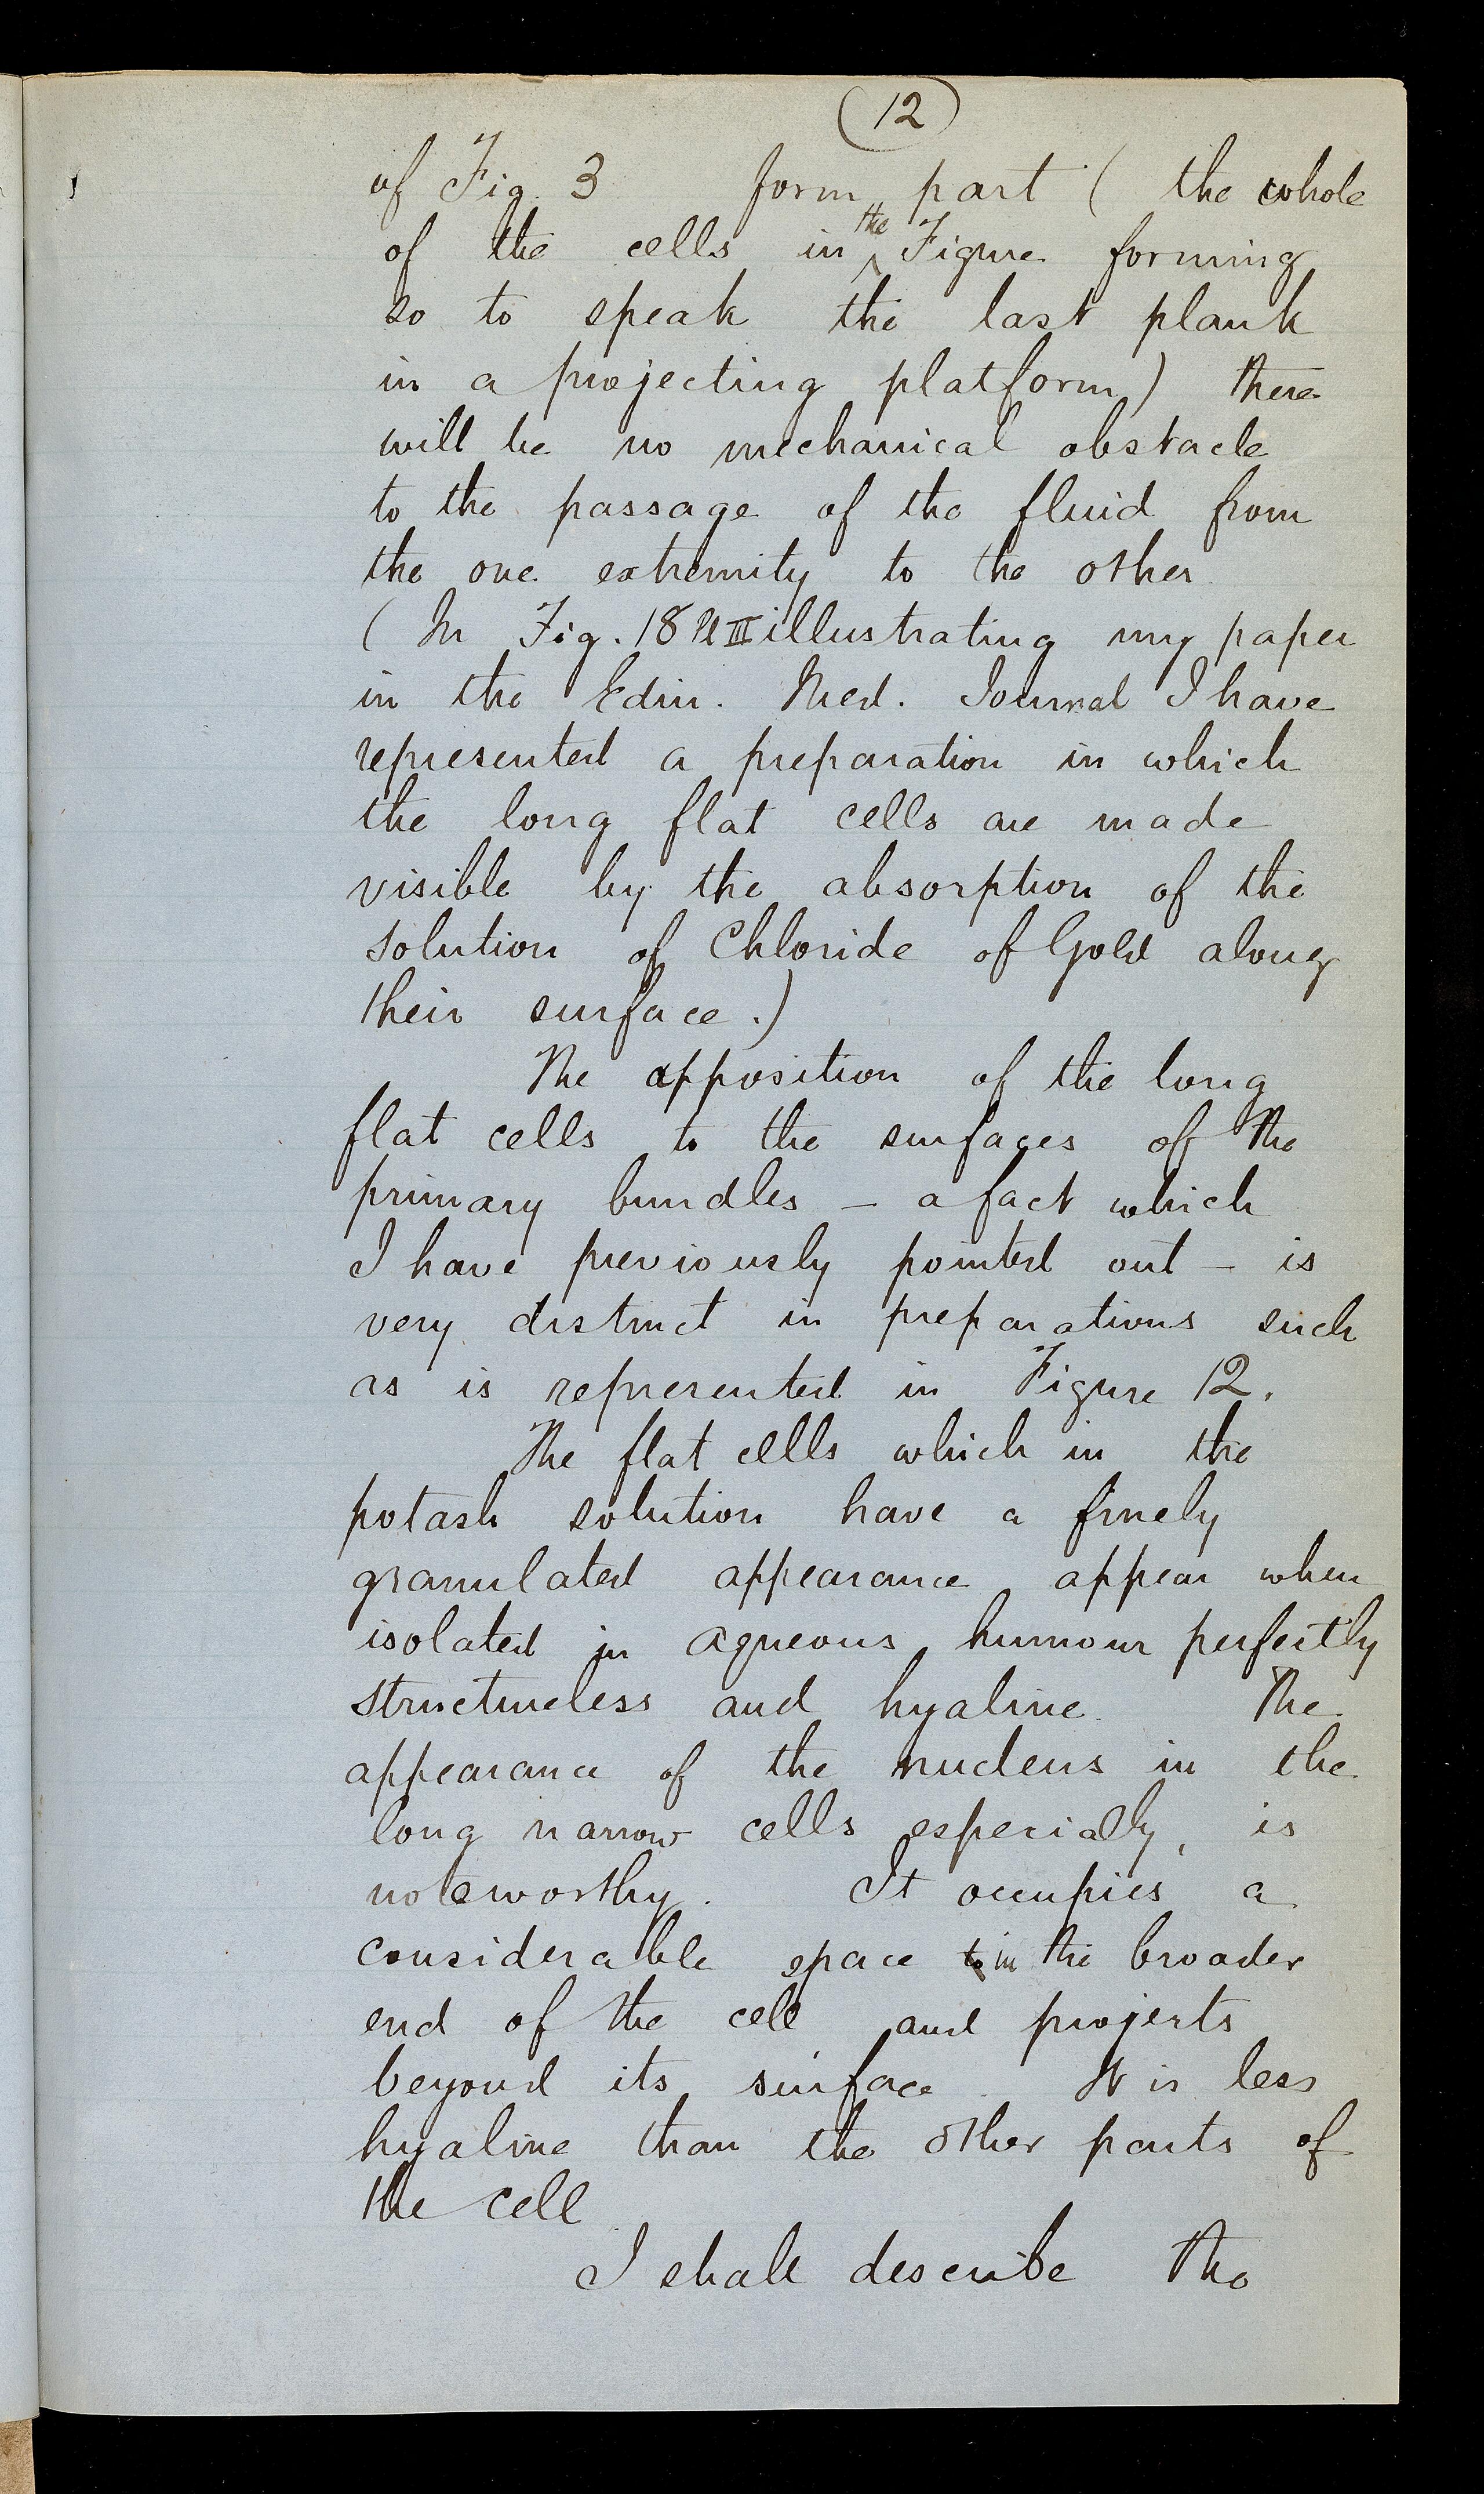 (12)
of Fig. 3 form part ( the whole
of the cells in the Figure forming
so to speak the last plank
in a projecting platform) there
will be no mechanical obstacle
to the passage of the fluid from
the one extremity to the other
( In Fig. 18 Pl III illustrating my paper
in the Edin. Med. Journal I have
represented a preparation in which
the long flat cells are made
visible by the absorption of the
solution of Chloride of Gold along
their surface.)
The apposition of the long
flat cells to the surfaces of the
primary bundles – a fact which
I have previously pointed out – is
very distinct in preparations such
as is represented in Figure 12.
The flat cells which in the
potash solution have a finely
granulated appearance appear when
isolated in aqueous humour perfectly
structureless and hyaline. The
appearance of the nucleus in the
long narrow cells especially, is
noteworthy. It occupies a
considerable space to in the broader
end of the cell and projects
beyond its surface. It is less
hyaline than the other parts of
the cell.
I shall describe the